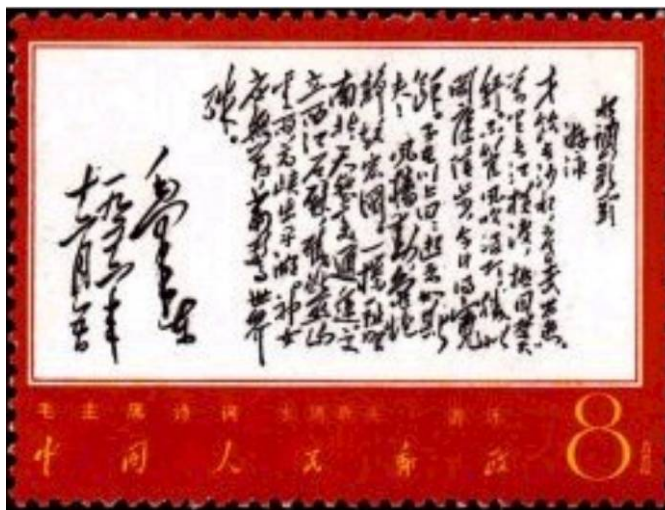 水调歌头
游泳
才饮长沙水，又食武昌鱼。
万里长江横渡，极目楚天
舒。不管风吹浪打，胜似
闲庭信步，今日得宽
馀。子在川上曰：逝者如斯
夫！风樯动，龟蛇
静，起宏图。一桥飞架
南北，天堑变通途。更
立西江石壁，截断巫山
云雨，高峡出平湖。神女
应无恙，当惊世界
殊。
毛泽东
一九五六年
十二月五日
毛主席诗词 水调歌头 · 游泳
中国人民邮政
8分